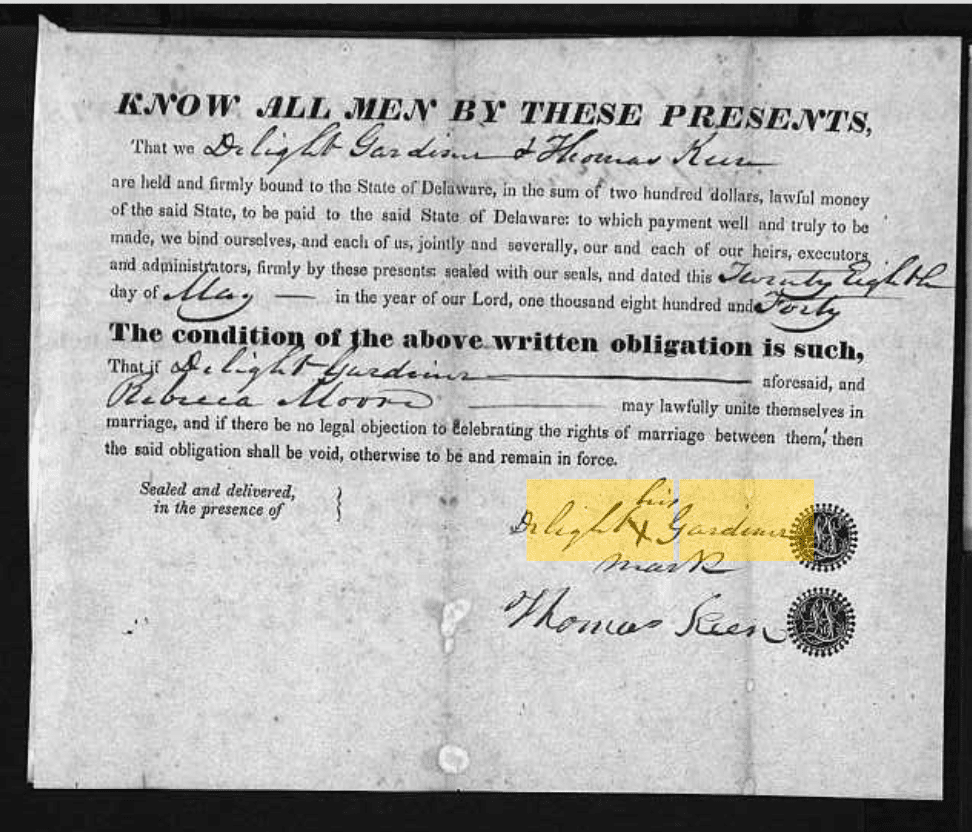 KNOW ALL MEN BY THESE PRESENTS,
That we Delight Gardiner & Thomas Keen
are held and firmly bound to the State of Delaware, in the sum of two hundred dollars, lawful money
of the said State, to be paid to the said State of Delaware: to which payment well and truly to be
made, we bind ourselves, and each of us, jointly and severally, our and each of our heirs, executors
and administrators, firmly by these presents: sealed with our seals, and dated this Twenty Eighth
day of May — in the year of our Lord, one thousand eight hundred and Forty
The condition of the above written obligation is such,
That if Delight Gardiner aforesaid, and
Rebecca Moore may lawfully unite themselves in
marriage, and if there be no legal objection to celebrating the rights of marriage between them, then
the said obligation shall be void, otherwise to be and remain in force.
Sealed and delivered,
in the presence of
his
Delight X Gardiner
mark
Thomas Keen